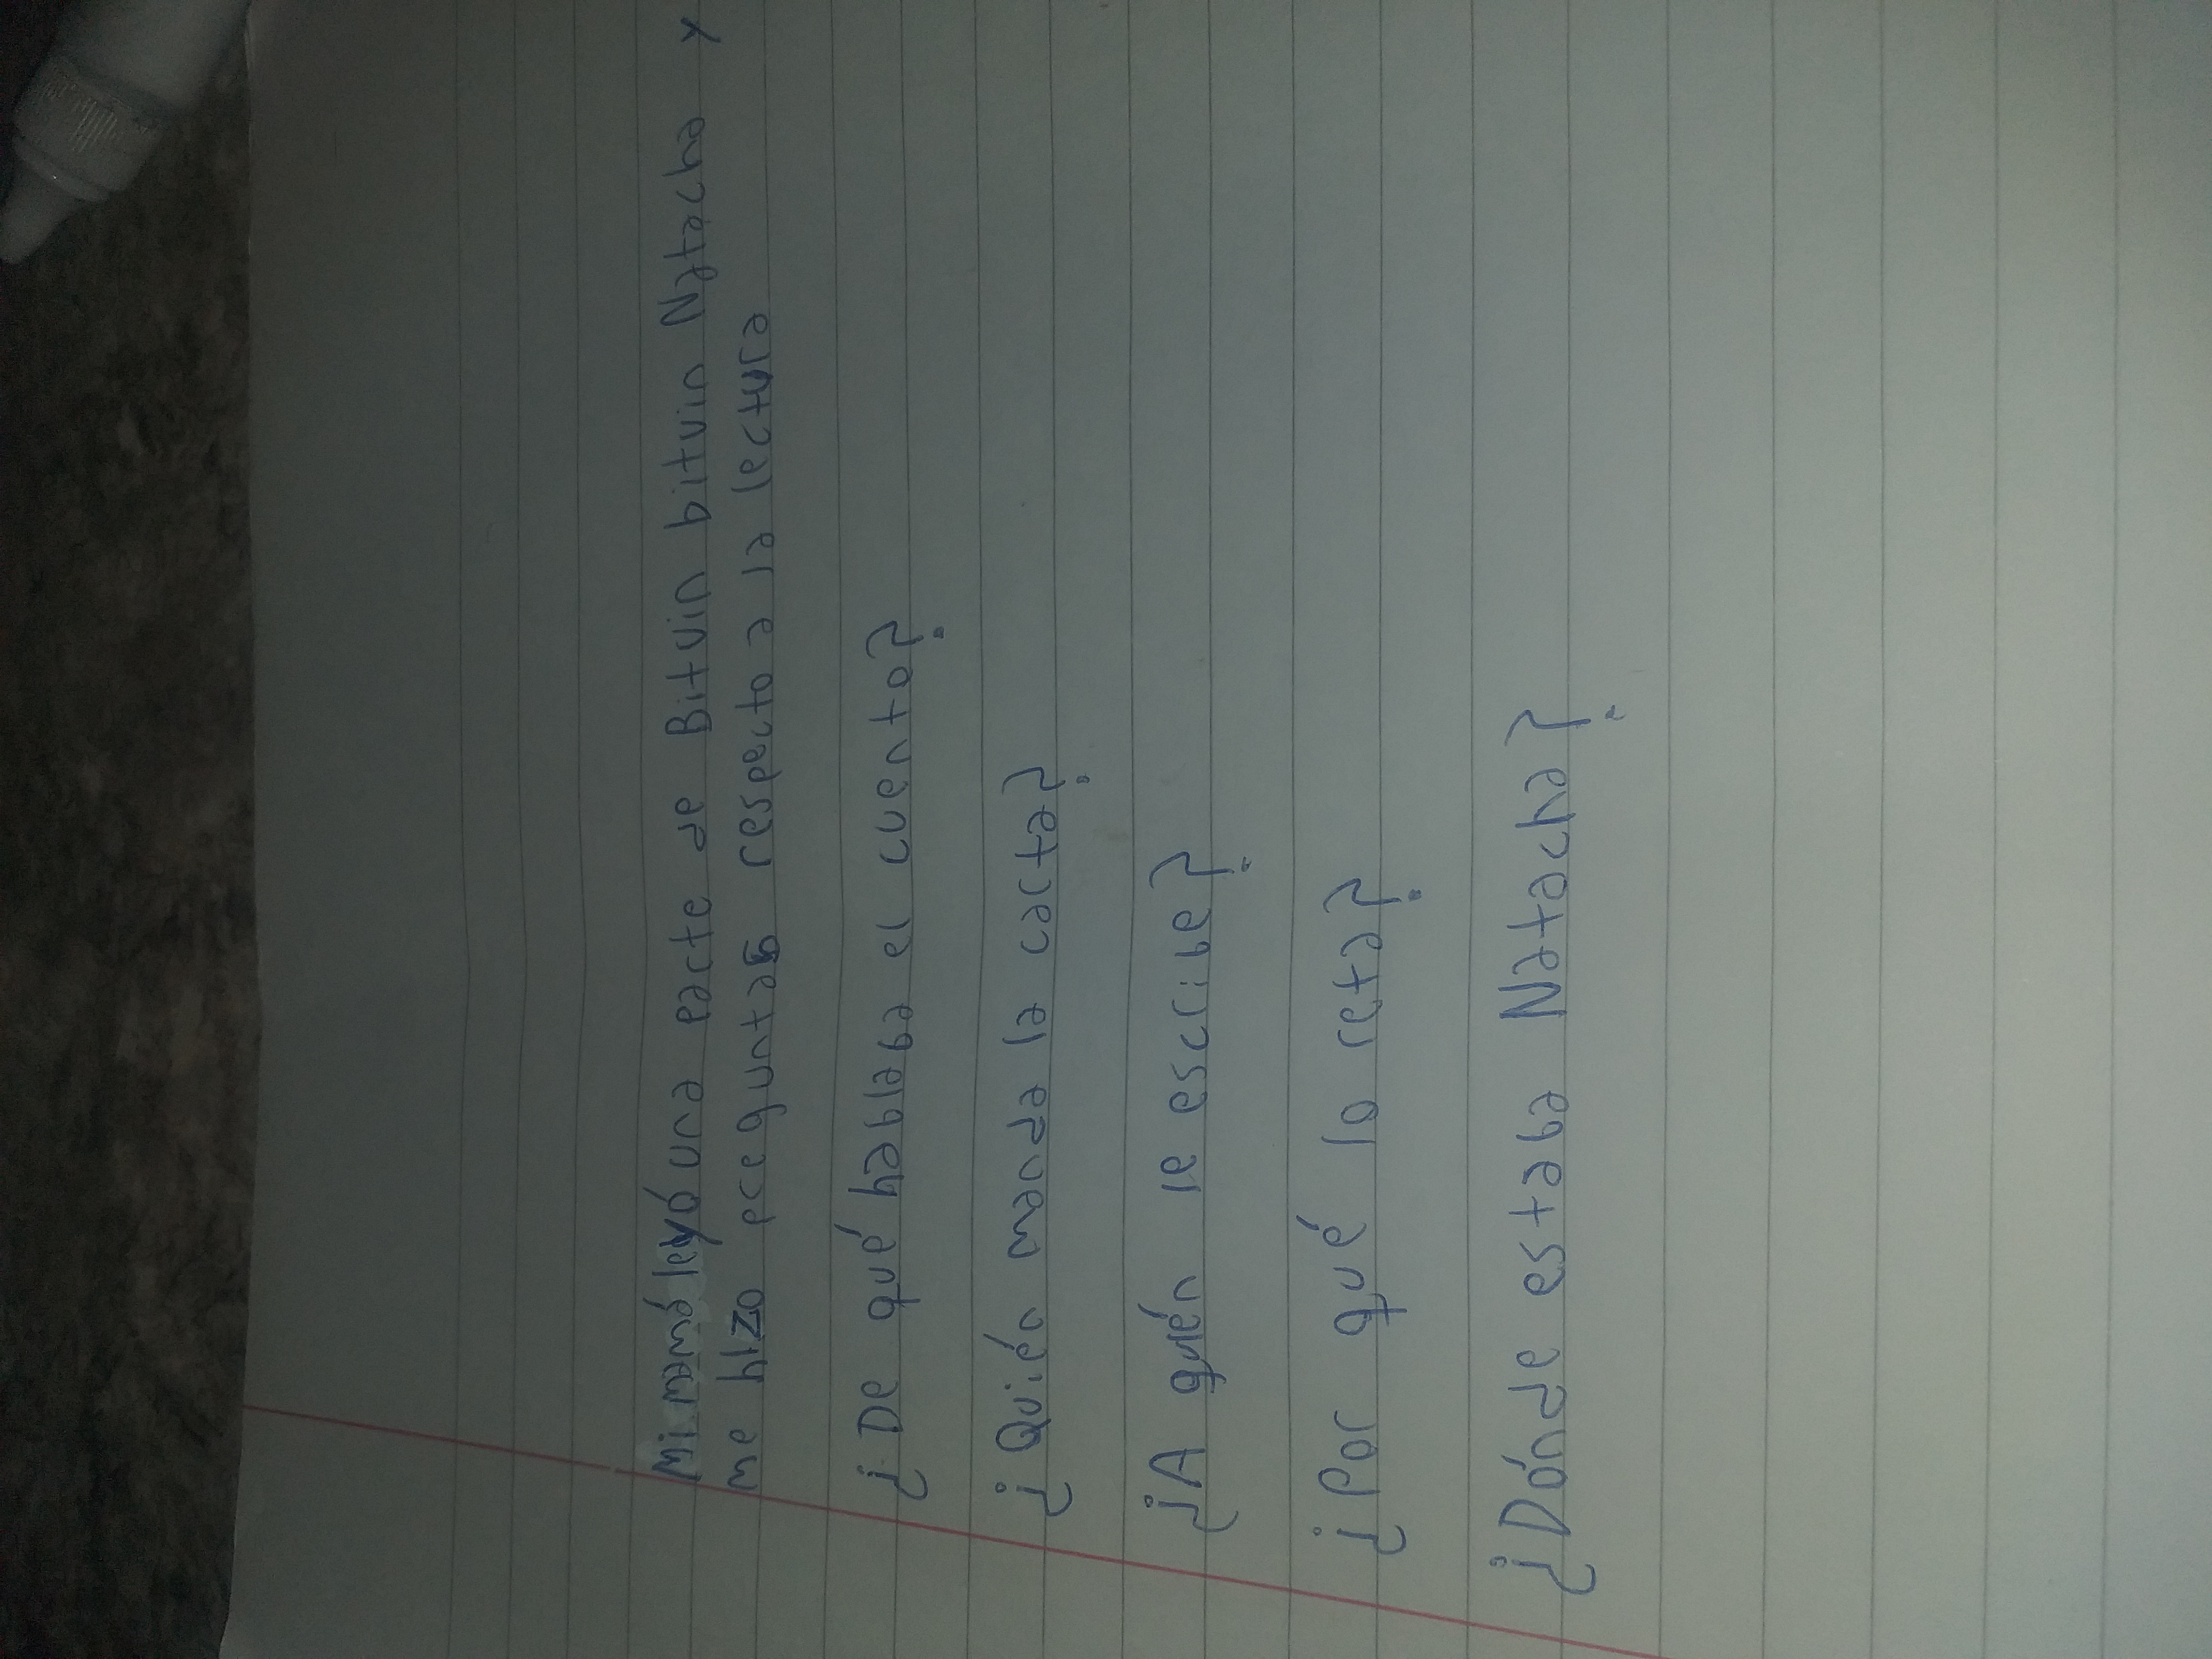 Mi mamá leyó una parte de Bituin bituin Natacha y
me hizo preguntas respecto a la lectura
¿De qué hablaba el cuento?
¿Quién manda la carta?
¿A quién le escribe?
¿Por qué lo reta?
¿Dónde estaba Natacha?